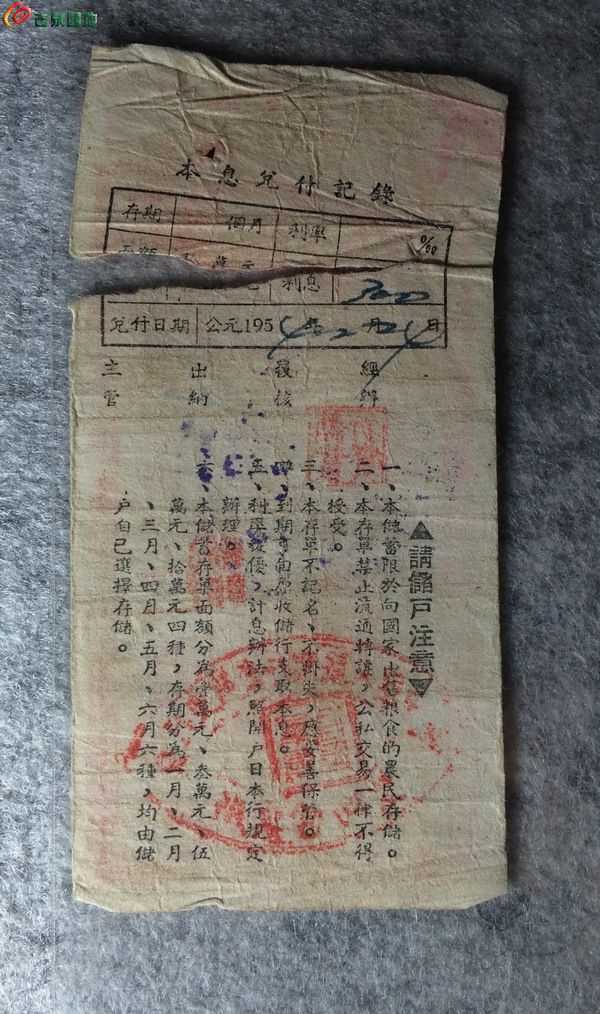 吉泉園地
本息兌付記錄
存期 個月 利率 ‰
萬元 利息 300
兌付日期 公元195 年 月 日
經辦 覆核 出納 主管
▲請儲戶注意▼
一、本儲蓄限於向國家出售粮食的農民存儲。
二、本存單禁止流通轉讓，公私交易一律不得
授受。
三、本存單不記名、不掛失，應妥善保管。
四、到期可向原收儲行支取本息。
五、利率從優，計息辦法，照開戶日本行規定
辦理。
六、本儲蓄存單面額分為壹萬元、叁萬元、伍
萬元、拾萬元四種，存期分為一月、二月
、三月、四月、五月、六月六種，均由儲
戶自己選擇存儲。